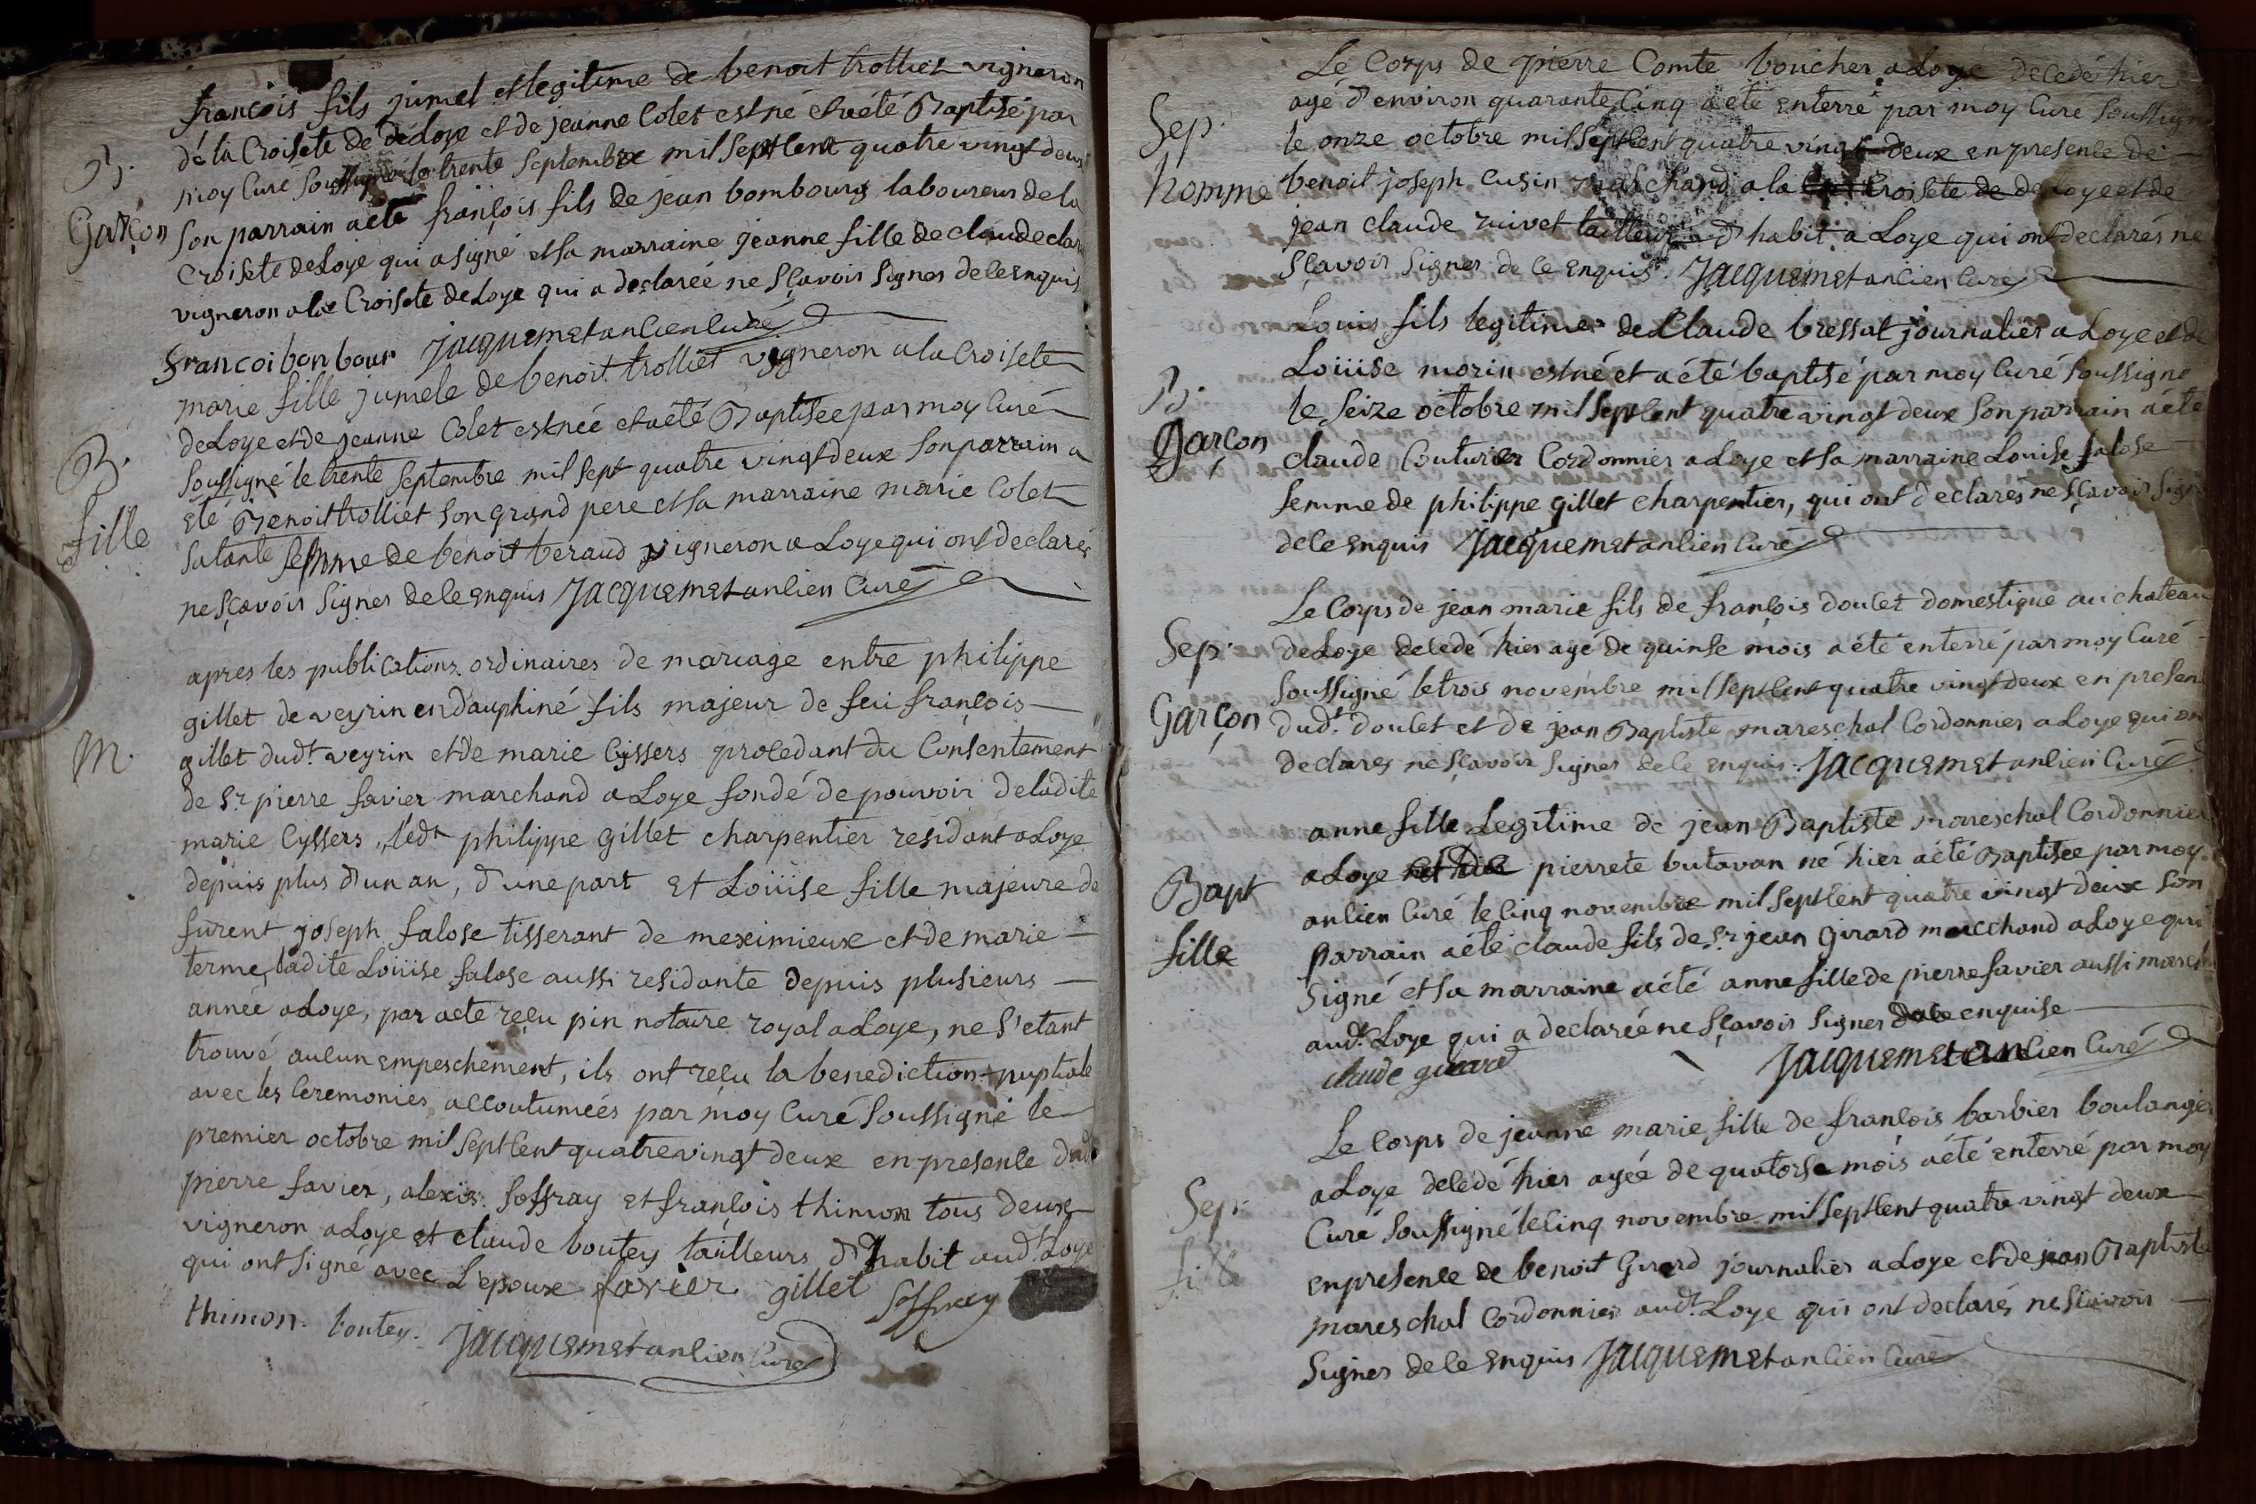 B.
Garçon
françois fils jumel et legitime de benoit trolliet vigneron
de la Croisete de deLoye et de jeanne Colet est né et a été Baptisé par
moy Curé soussigné le trente septembre mil sept cent quatre vingt deux
son parrain a été françois fils de jean bombourg laboureur de la
Croisete deLoye qui a signé et sa marraine jeanne fille de claude
vigneron a la Croisete de Loye qui a declareé ne sçavoir signer de ce enquis
francoi bonbour Jacquemet ancien curé
B.
fille
marie fille jumele de benoit trolliet vigneron a la Croisete
deLoye et de jeanne Colet est née et a été Baptiseé par moy Curé
soussigné le trente septembre mil sept quatre vingt deux son parrain a
eté Benoit trolliet son grand pere et sa marraine marie Colet
sa tante femme de benoit beraud vigneron a Loye qui ont declarés
ne sçavoir signer de ce enquis Jacquemet ancien Curé
M.
apres les publications ordinaires de mariage entre philippe
gillet de veyrin en dauphiné fils majeur de feu françois
gillet dudt veyrin et de marie Cyssers procedant du Consentement
de Sr pierre favier marchand a Loye fondé de pouvoir de ladite
marie Cyssers, ledt philippe gillet charpentier residant a Loye
depuis plus d'un an, d'une part et Loüise fille majeure de
furent joseph falose tisserant de meximieux et de marie
terme, ladite Loüise falose aussi residante depuis plusieurs
anneé a Loye, par acte reçu pin notaire royal a Loye, ne s'etant
trouvé aucun empeschement, ils ont reçu la benediction nuptiale
avec les Ceremonies accoutumeés par moy Curé soussigné le
premier octobre mil sept cent quatre vingt deux en presence dudt
pierre favier, alexis soffray et françois thimon tous deux
vigneron a Loye et claude boutey tailleurs d'habit audt Loye
qui ont signé avec L'epoux favier gillet soffray
thimon. boutey. Jacquemet ancien Curé
Sep.
homme
Le Corps de pierre Comte boucher a Loye decedé hier
agé d'environ quarante Cinq a eté enterré par moy Curé soussigné
le onze octobre mil sept cent quatre vingt deux en presence de
benoit joseph Cusin marchand a la Croisete de deLoye et de
jean claude ruivet tailleur d'habit a Loye qui ont declarés ne
sçavoir signer de ce enquis. Jacquemet ancien Curé
B.
Garçon
Louis fils legitime de Claude bressat journalier a Loye et de
Loüise morin est né et a été baptisé par moy Curé soussigné
le seize octobre mil sept cent quatre vingt deux son parrain a été
claude Couturier Cordonnier a Loye et sa marraine Louise falose
femme de philippe gillet charpentier, qui ont declarés ne sçavoir signer
de ce enquis Jacquemet ancien Curé
Sep.
Garçon
Le Corps de jean marie fils de françois doulet domestique au chateau
de Loye decedé hier agé de quinse mois a été enterré par moy Curé
soussigné le trois novembre mil sept cent quatre vingt deux en presen
dudt. doulet et de jean Baptiste mareschal Cordonnier a Loye qui ont
declares ne sçavoir signer de ce enquis. Jacquemet ancien Curé
Bapt
fille
anne fille Legitime de jean Baptiste mareschal Cordonnier
a Loye et de pierrete butavan né hier a été Baptiseé par moy
ancien Curé le Cinq novembre mil sept cent quatre vingt deux son
parrain a été claude fils de Sr jean Girard marchand a Loye qui
signé et sa marraine a été anne fille de pierre favier aussi march
audt. Loye qui a declareé ne sçavoir signer de ce enquise
claude girard Jacquemet ancien Curé
Sep.
fille
Le Corps de jeanne marie fille de françois barbier boulanger
a Loye decedé hier ageé de quatorse mois a été enterré par moy
Curé soussigné le Cinq novembre mil sept cent quatre vingt deux
en presence de benoit Girard journalier a Loye et de jean Baptiste
mareschal Cordonnier audt. Loye qui ont declarés ne sçavoir
signer de ce enquis Jacquemet ancien Curé